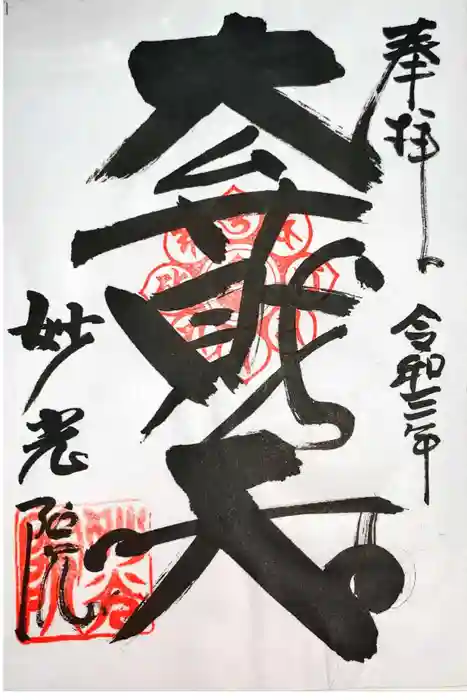 奉拝 令和三年
大弁財天
妙光院